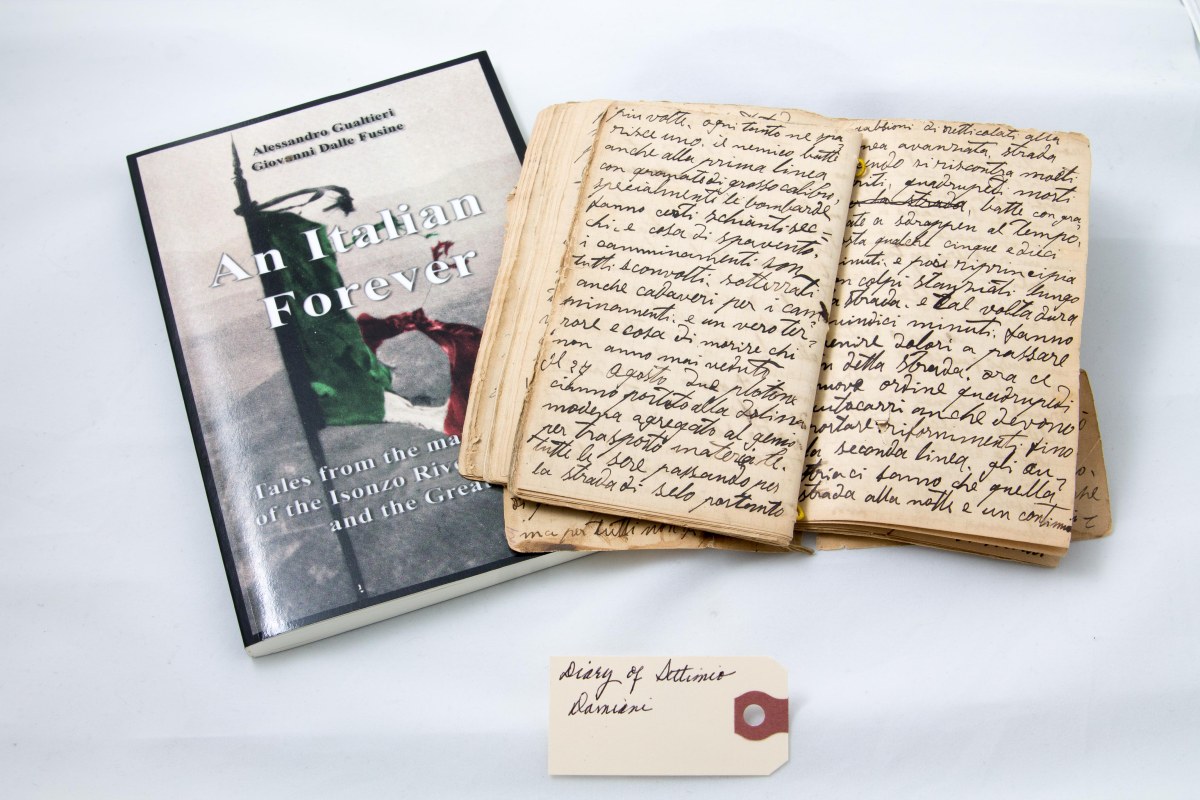 Alessandro Gualtieri
Giovanni Dalle Fusine
An Italian
Forever
Tales from the ma
of the Isonzo Rive
and the Great
più volte. ogni tanto ne
risce uno, il nemico batte
anche alla prima linea
con granate di grosso calibro,
specialmente le bombarde
fanno certi schianti sec
chi. e cosa di spavento.
i camminamenti son
tutti sconvolti. sotterrati
anche cadaveri per i cam
minamenti. e un vero ter
rore e cosa di morire chi
non anno mai veduto
il 27 agosto due plotone
cianno portato alla dolina
modena agregato al genio
per trasporto materiale.
tutte le sere passando per
la strada di selo portanto
ma per tutti non
di retticolati, alla
nea avanzata, strada
endo si riscontra molti
riti, quadrupedi morti
la strada, batte con gra
ate a sdrappen al tempo,
sta qualche cinque e dieci
minuti, e poi riprincipia
n colpi slanziati. lungo
a strada. e tal volta dura
uindici minuti. fanno
venire dolori a passare
n detta strada. ora cel
nuovo ordine quadrupedi
utocarri anche devono
portare riforniment. fino
la seconda linea, gli au
striaci sanno che quella
strada alla notte e un continuo
Diary of Settimio
Damiani